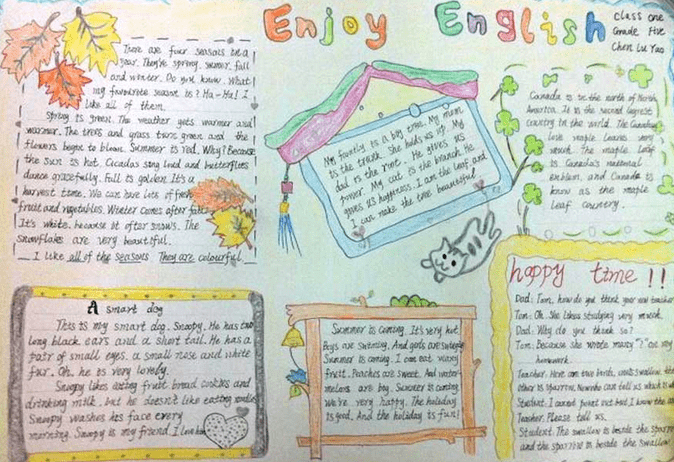 Enjoy English
Class one
Grade Five
Chen Lu Yao
There are four seasons in a
year. They're spring, summer, fall
and winter. Do you know. What
my favourite season is? Ha-Ha! I
like all of them.
Spring is green. The weather gets warmer and
warmer. The trees and grass turns green and the
flowers begin to bloom. Summer is red, Why? Because
the sun is hot. Cicadas sing loud and butterflies
dance gracefully. Fall is golden. It's a
harvest time. We can have lots of fresh
fruit and vegetables. Winter comes after fall.
It's white. because it often snows. The
snowflakes are very beautiful.
I like all of the seasons They are colourful.
My family is a big tree. My mum
is the trunk. She holds us up. My
dad is the root. He gives us
power. My cat is the branch. He
gives us happiness. I am the leaf and
I can make the tree beautiful.
Canada is in the north of North
America. It is the second largest
country in the world. The Canadians
love maple leaves very
much. The maple leaf
is Canada's national
emblem, and Canada is
know as the maple
leaf country.
A smart dog
This is my smart dog. Snoopy. He has two
long black ears and a short tail. He has a
pair of small eyes. a small nose and white
fur. Oh, he is very lovely.
Snoopy likes eating fruit bread cookies and
drinking milk. but he doesn't like eating noodles
Snoopy washes his face every
morning. Snoopy is my friend. I love him
Summer is coming. It's very hot.
Boys are swimming. And girls are
Summer is coming. I can eat many
fruit. Peaches are sweet. And water-
melons are big. Summer is coming.
We're very happy. The holiday
is good. And the holiday is fun!
happy time !!
Dad: Tom, how do you think your new teacher
Tom: Oh. She likes studying very much.
Dad: Why do you think so?
Tom: Because she wrote many "?" on my
homework.
Teacher: Here are two birds, one is swallow. the
other is sparrow. Now who can tell us which is wh
Student: I cannot point out but I know the an
Teacher: Please tell us.
Student: The swallow is beside the sparr
and the sparrow is beside the swallow